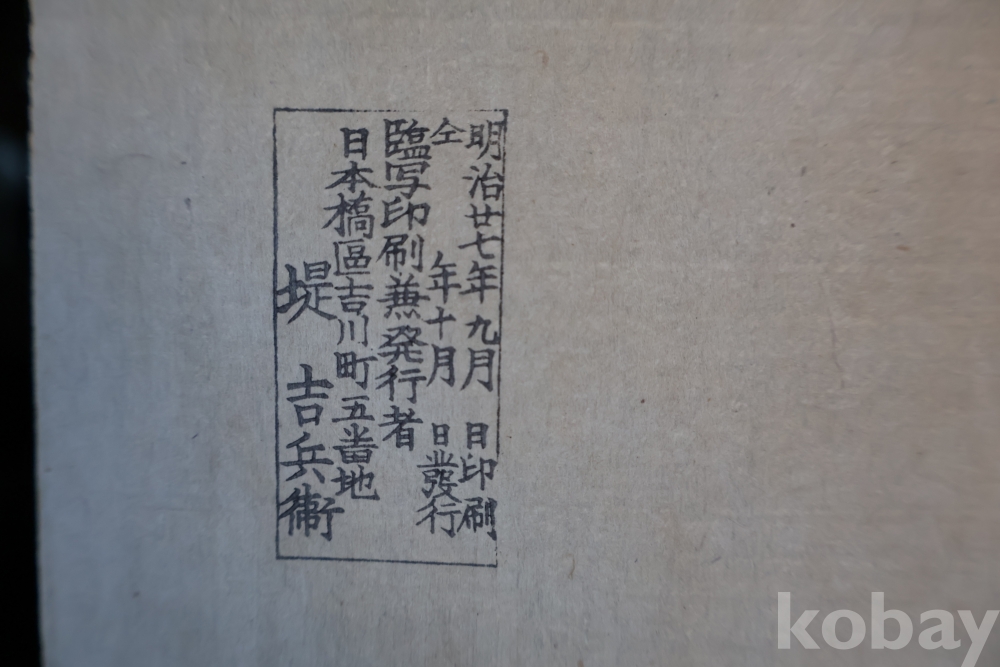 明治廿七年九月 日印刷
仝 年十月 日並發行
臨写印刷兼発行者
日本橋區吉川町五番地
堤 吉兵衛
kobay